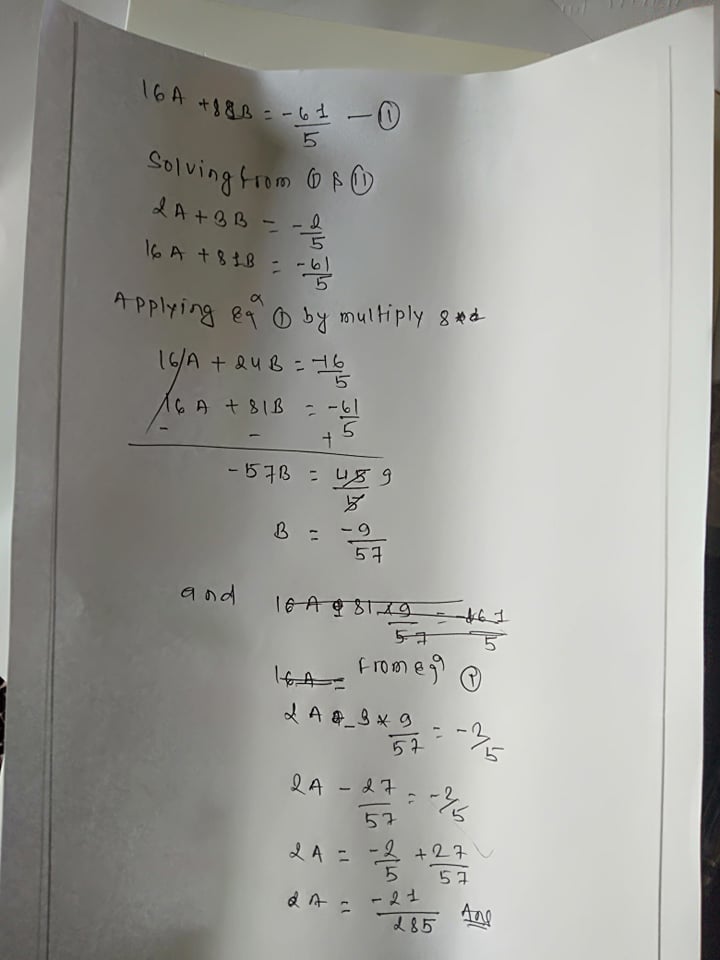 16A + 81B = -61/5 — (1)
Solving from (1) & (11)
2A + 3B = -2/5
16A + 81B = -61/5
Applying eqn (1) by multiply 8
16A + 24B = -16/5
16A + 81B = -61/5
- - +
-57B = 45/5 9
B = -9/57
and 16A 81 9/57 = -61/5
16A = From eqn
2A - 3 * 9/57 = -2/5
2A - 27/57 = -2/5
2A = -2/5 + 27/57
2A = -21/285 Ans